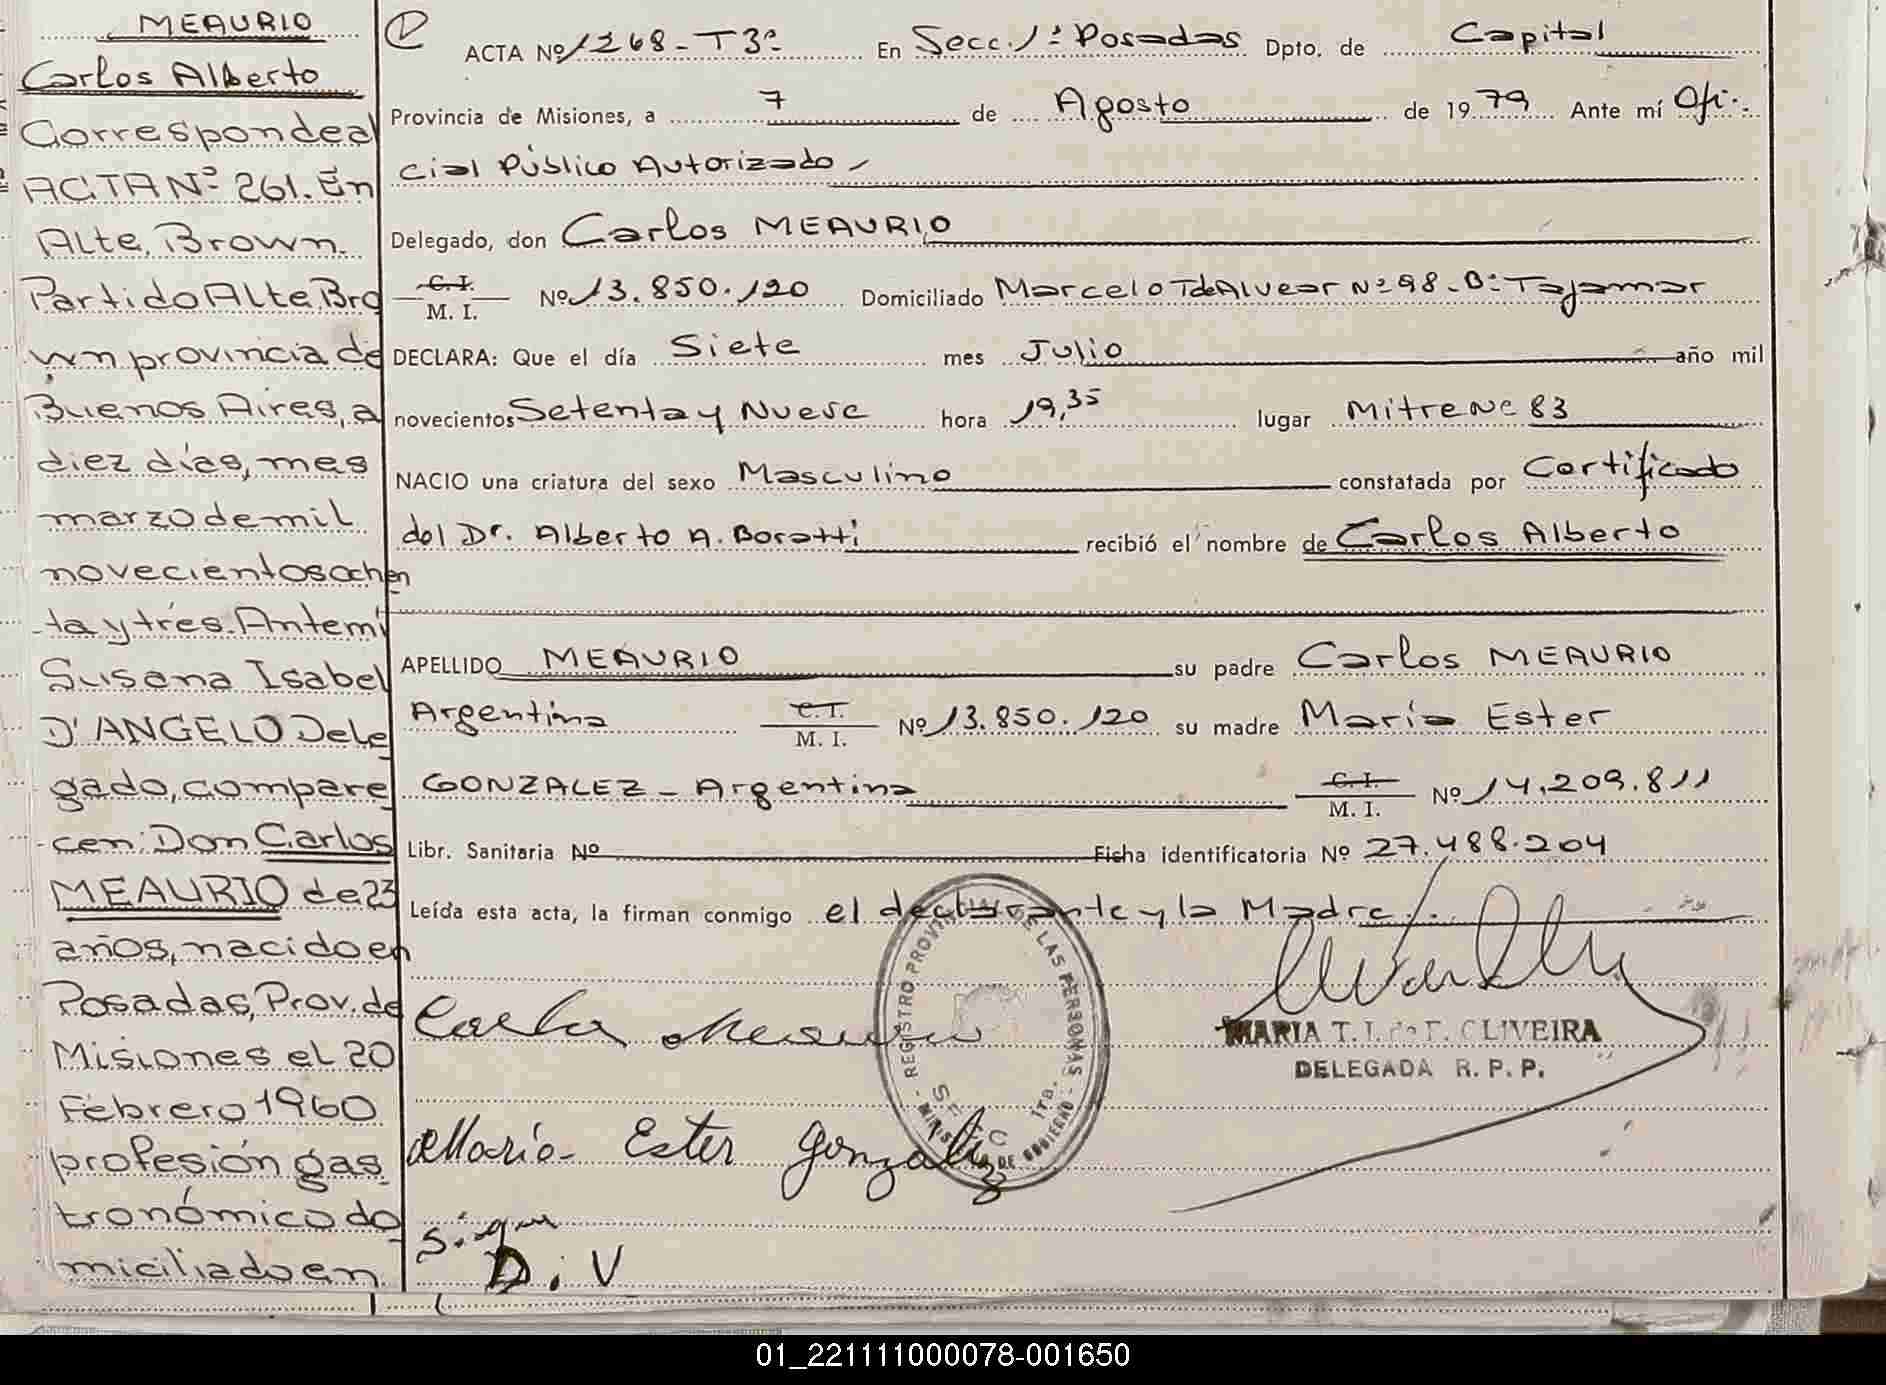 MEAURIO
Carlos Alberto
Correspondeal
ACTA Nº 261. En
Alte. Brown.
Partido Alte. Bro
wn provincia de
Buenos Aires, a
diez días, mes
marzo de mil
novecientos ochen
ta y tres. Ante mí
Susana Isabel
D'ANGELO Dele
gado, compare
cen: Don Carlos
MEAURIO de 23
años, nacido en
Posadas, Prov. de
Misiones el 20
Febrero 1960
profesión gas
tronómico do
miciliado en
ACTA Nº 1268 - T3º En Secc. 1ª Posadas Dpto. de Capital
Provincia de Misiones, a 7 de Agosto de 1979 Ante mí Ofi-
cial Público Autorizado
Delegado, don Carlos MEAURIO
C. I.
M. I. Nº 13.850.120 Domiciliado Marcelo T de Alvear Nº 98 - Bº Tajamar
DECLARA: Que el día Siete mes Julio año mil
novecientos Setenta y Nueve hora 19,35 lugar Mitre Nº 83
NACIO una criatura del sexo Masculino constatada por Certificado
del Dr. Alberto A. Boratti recibió el nombre de Carlos Alberto
APELLIDO MEAURIO su padre Carlos MEAURIO
Argentina C. I.
M. I. Nº 13.850.120 su madre María Ester
GONZALEZ - Argentina C. I.
M. I. Nº 14.209.811
Libr. Sanitaria Nº Ficha identificatoria Nº 27.488.204
Leída esta acta, la firman conmigo el declarante y la Madre.
Carlos Meaurio
MARIA T. I. de F. OLIVEIRA
DELEGADA R. P. P.
REGISTRO PROVINCIAL DE LAS PERSONAS
- MINISTERIO DE GOBIERNO -
SECC 1ra.
María Ester González
Sigue
D. V
01_221111000078-001650